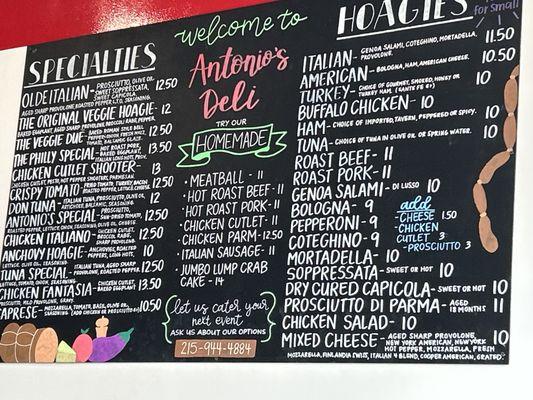 SPECIALTIES
OLDE ITALIAN - PROSCIUTTO, OLIVE OIL, SWEET SOPPRESSATA, SWEET CAPICOLA, 12.50
AGED SHARP PROVOLONE, ROASTED PEPPER, L,T,O, SEASONING.
THE ORIGINAL VEGGIE HOAGIE - 12
BAKED EGGPLANT, AGED SHARP PROVOLONE, BROCCOLI RABE, ROASTED PEPPER.
THE VEGGIE DUE - 12.50
THE PHILLY SPECIAL - HOT ROAST PORK, 13.50
CHICKEN CUTLET SHOOTER - 13
CHICKEN CUTLET, PESTO, HOT PEPPER SHOOTERS, PARMESAN.
CRISPY TOMATO - FRIED TOMATO, TURKEY BACON 12.50
DON TUNA - ITALIAN TUNA, PROSCIUTTO, OLIVE OIL, 12
ARTICHOKE, BALSAMIC, SEASONING.
ANTONIO'S SPECIAL - PROSCIUTTO, SUN-DRIED TOMATO, 12.50
CHICKEN ITALIANO - CHICKEN CUTLET, BROCCOLI RABE, SHARP PROVOLONE. 12.50
ANCHOVY HOAGIE - ANCHOVIES, ROASTED PEPPERS, LONG HOTS, 10
LETTUCE, OLIVE OIL, SEASONING.
TUNA SPECIAL - ITALIAN TUNA, AGED SHARP PROVOLONE, ROASTED PEPPER. 12.50
LETTUCE, TOMATO, ONION, SEASONING.
CHICKEN FANTASIA - CHICKEN CUTLET, BAKED EGGPLANT, 13.50
PROSCIUTTO, MILD PROVOLONE, GRAVY.
CAPRESE - MOZZARELLA, TOMATO, BASIL, OLIVE OIL, SEASONING (ADD CHICKEN OR PROSCIUTTO) 10.50
welcome to
Antonio's
Deli
TRY OUR
HOMEMADE
• MEATBALL - 11
• HOT ROAST BEEF - 11
• HOT ROAST PORK - 11
• CHICKEN CUTLET - 11
• CHICKEN PARM - 12.50
• ITALIAN SAUSAGE - 11
• JUMBO LUMP CRAB
CAKE - 14
let us cater your
next event
ASK US ABOUT OUR OPTIONS
215-944-4884
HOAGIES
for small
ITALIAN - GENOA SALAMI, COTEGHINO, MORTADELLA, PROVOLONE. 11.50
AMERICAN - BOLOGNA, HAM, AMERICAN CHEESE. 10.50
TURKEY - CHOICE OF GOURMET, SMOKED, HONEY OR TURKEY HAM 10
BUFFALO CHICKEN - 10
HAM - CHOICE OF IMPORTED, TAVERN, PEPPERED OR SPICY. 10
TUNA - CHOICE OF TUNA IN OLIVE OIL OR SPRING WATER. 10
ROAST BEEF - 11
ROAST PORK - 11
GENOA SALAMI - DI LUSSO 10
BOLOGNA - 9
PEPPERONI - 9
COTEGHINO - 9
MORTADELLA - 10
add
- CHEESE 1.50
- CHICKEN
CUTLET 3
- PROSCIUTTO 3
SOPPRESSATA - SWEET OR HOT 10
DRY CURED CAPICOLA - SWEET OR HOT 10
PROSCIUTTO DI PARMA - AGED 18 MONTHS 11
CHICKEN SALAD - 10
MIXED CHEESE - AGED SHARP PROVOLONE, NEW YORK AMERICAN, NEW YORK HOT PEPPER, MOZZARELLA, FRESH 10
MOZZARELLA, FINLANDIA SWISS, ITALIAN 4 BLEND, COOPER AMERICAN, GRATED.